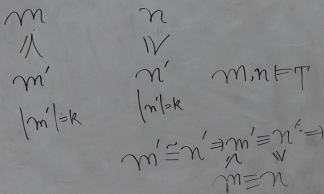 m n
⋏ ⋎
m' n' m,n ⊨ T
|m'|=k |n'|=k
m' ≅ n' ⇒ m' ≡ n' ⇒
⋏ ⋎
m ≡ n